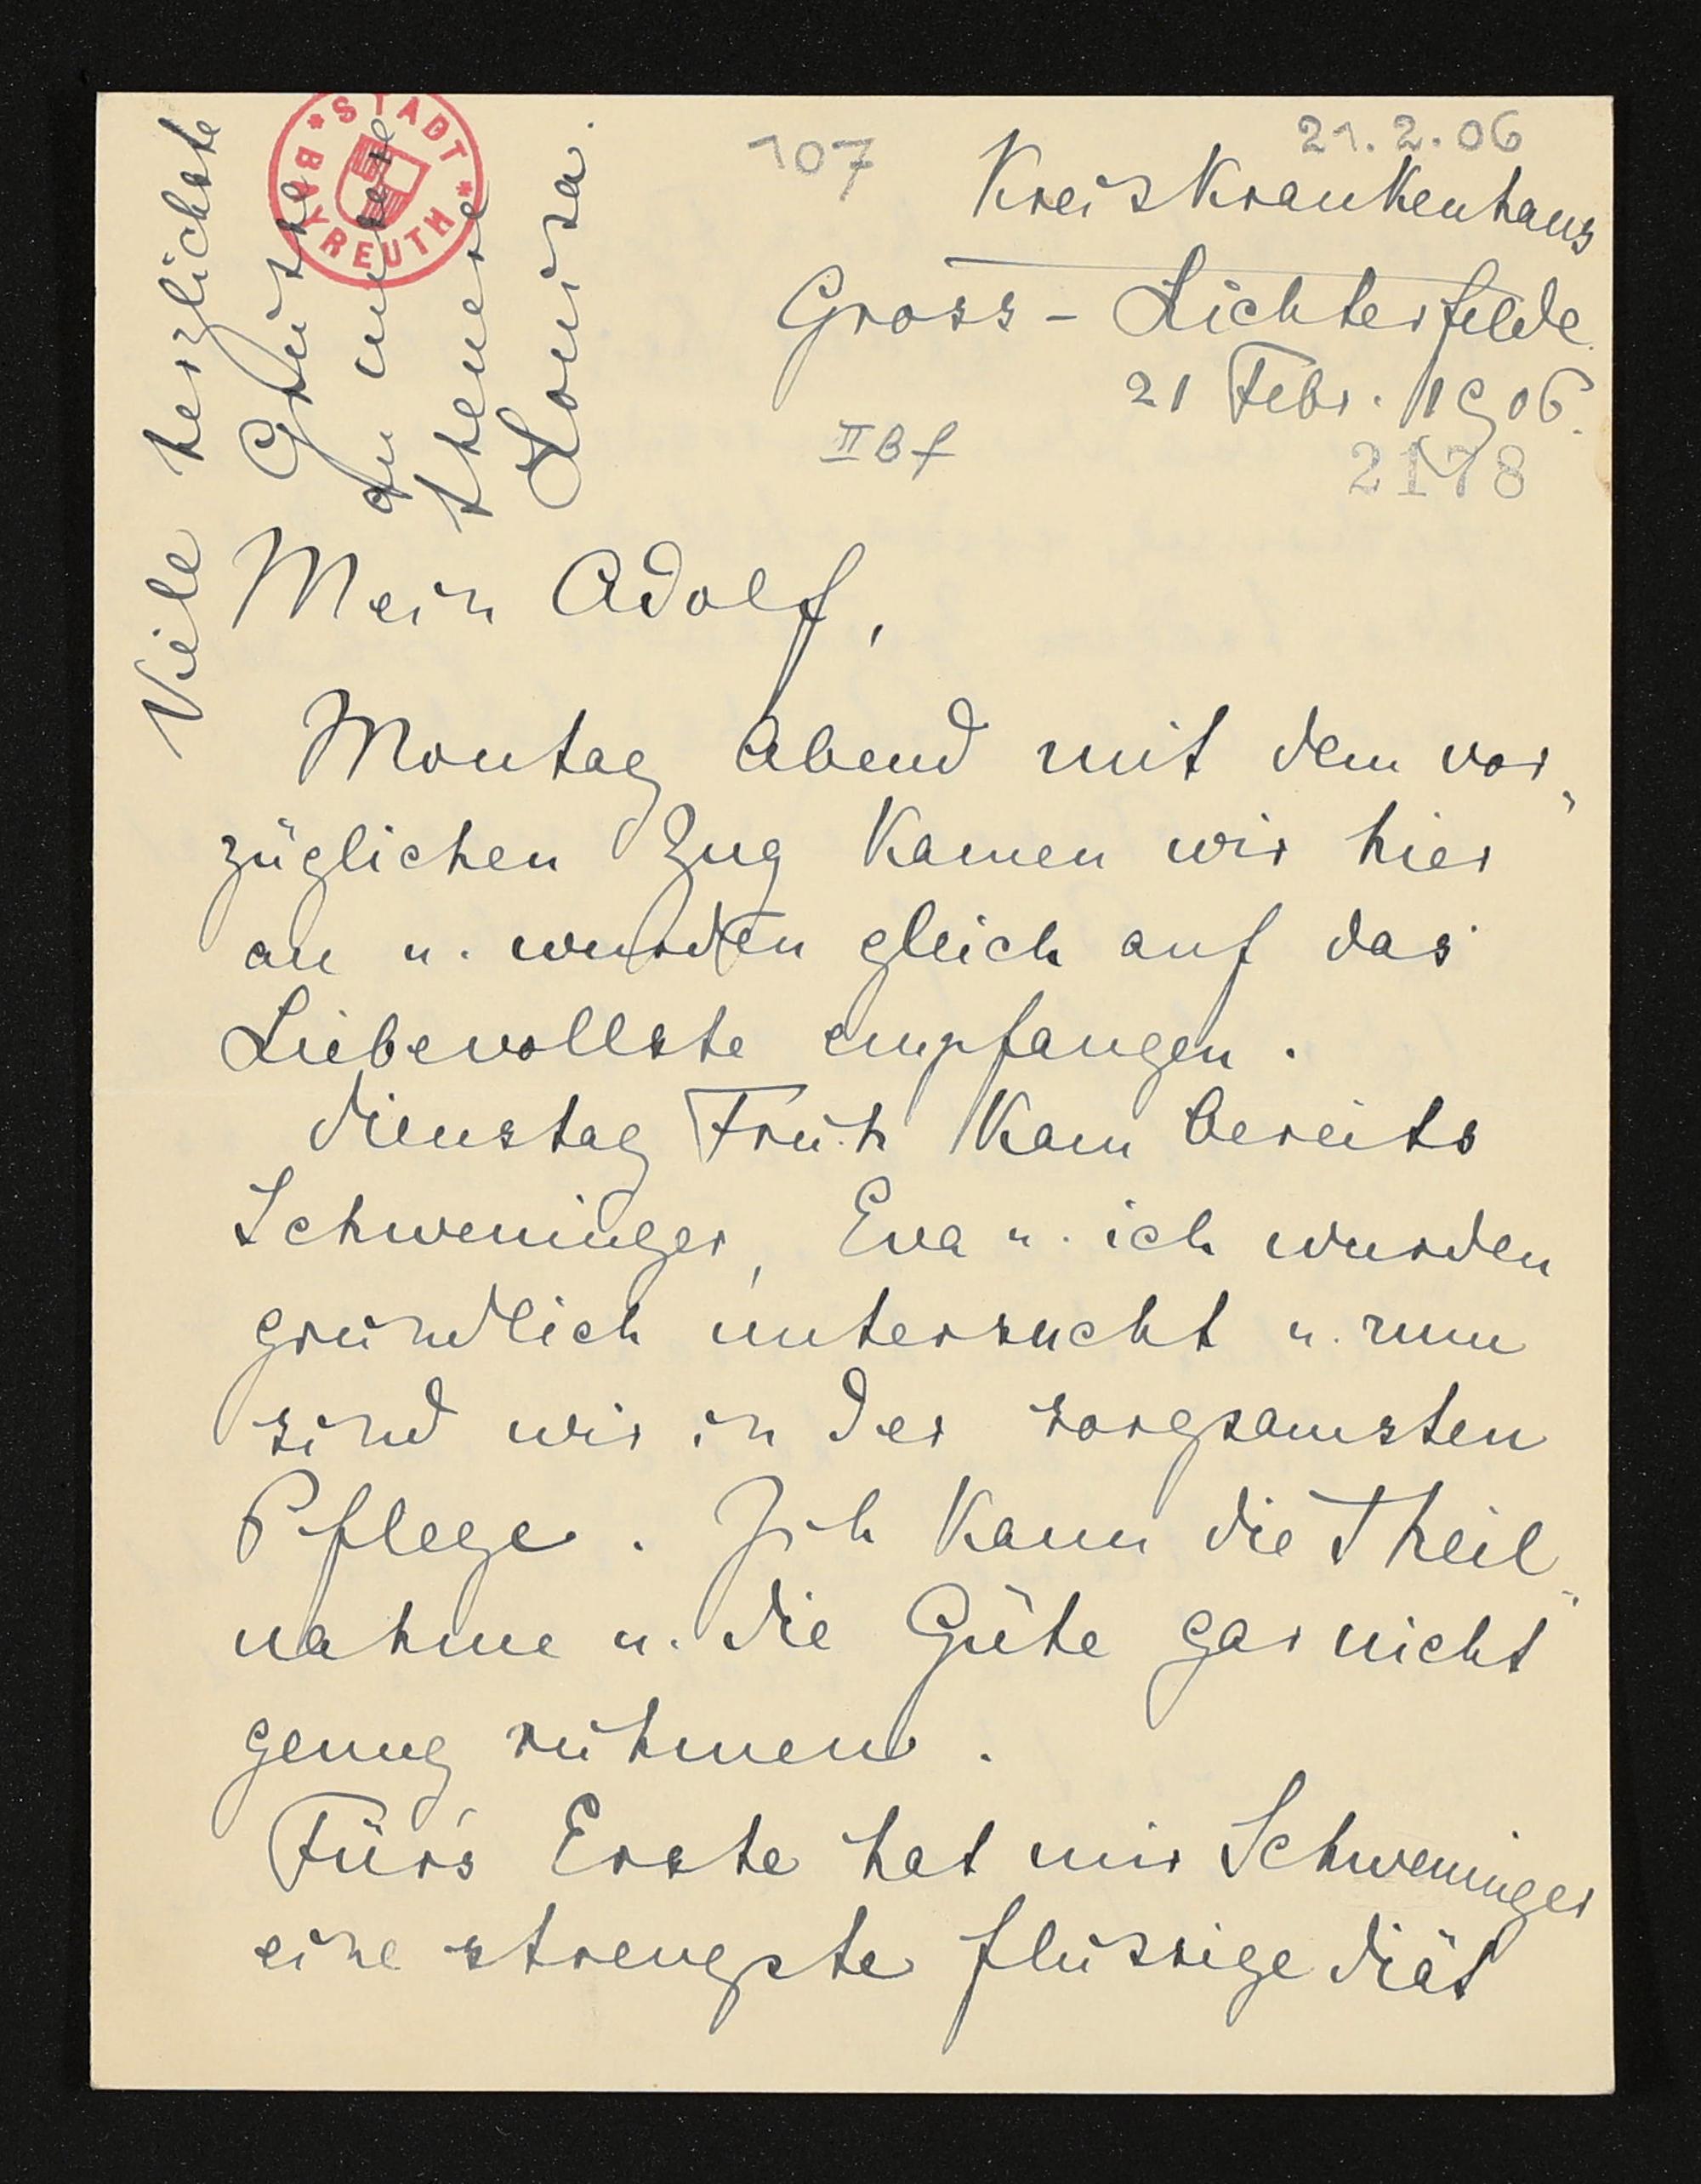 21.2.06
107
Kreiskrankenhaus
Gross-Lichterfelde
21 Febr. 1906.
II B f
2178
STADT BAYREUTH
Viele herzlichste
Grüsse
an unsere
theuere
Louisa.
Mein Adolf,
Montag Abend mit dem vor„
züglichen Zug kamen wir hier
an u. wurden gleich auf das
Liebevollste empfangen.
Dienstag Früh kam bereits
Schweninger, Eva u. ich wurden
gründlich untersucht u. nun
sind wir in der sorgsamsten
Pflege. Ich kann die Theil„
nahme u. die Güte gar nicht
genug rühmen.
Für's Erste hat mir Schweninger
eine strengste flüssige Diät